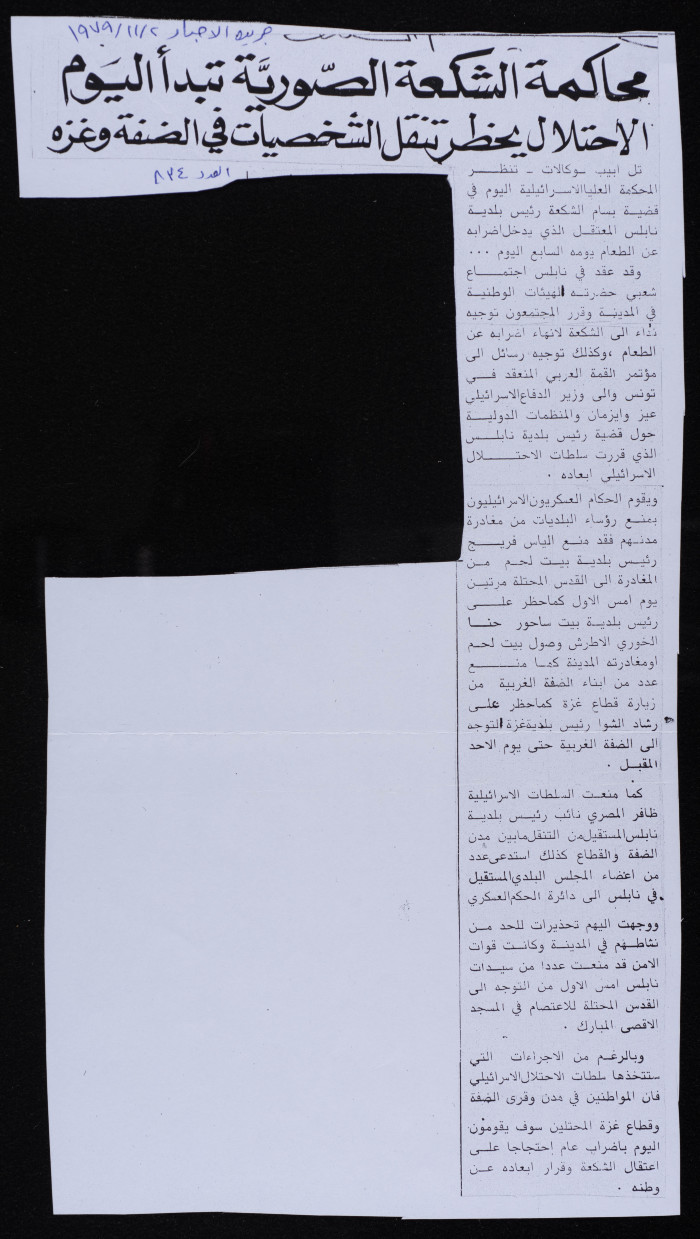 جريدة الاخبار ١٩٧٩/١١/٢
محاكمة الشكعة الصّوريَّة تبدأ اليَوم
الاحتلال يحظر تنقل الشخصيات في الضفة وغزه
العدد ٨٣٤
تل ابيب -وكالات - تنظر
المحكمة العليا الاسرائيلية اليوم في
قضية بسام الشكعة رئيس بلدية
نابلس المعتقل الذي يدخل اضرابه
عن الطعام يومه السابع اليوم ...
وقد عقد في نابلس اجتماع
شعبي حضرته الهيئات الوطنية
في المدينة وقرر المجتمعون توجيه
نداء الى الشكعة لانهاء اضرابه عن
الطعام ،وكذلك توجيه رسائل الى
مؤتمر القمة العربي المنعقد في
تونس والى وزير الدفاع الاسرائيلي
عيز وايزمان والمنظمات الدولية
حول قضية رئيس بلدية نابلس
الذي قررت سلطات الاحتلال
الاسرائيلي ابعاده .
ويقوم الحكام العسكريون الاسرائيليون
بمنع رؤساء البلديات من مغادرة
مدنهم فقد منع الياس فريج
رئيس بلدية بيت لحم من
المغادرة الى القدس المحتلة مرتين
يوم امس الاول كما حظر على
رئيس بلدية بيت ساحور حنا
الخوري الاطرش وصول بيت لحم
او مغادرته المدينة كما منع
عدد من ابناء الضفة الغربية من
زيارة قطاع غزة كما حظر على
رشاد الشوا رئيس بلدية غزة التوجه
الى الضفة الغربية حتى يوم الاحد
المقبل .
كما منعت السلطات الاسرائيلية
ظافر المصري نائب رئيس بلدية
نابلس المستقيل من التنقل ما بين مدن
الضفة والقطاع كذلك استدعى عدد
من اعضاء المجلس البلدي المستقيل
في نابلس الى دائرة الحكم العسكري
ووجهت اليهم تحذيرات للحد من
نشاطهم في المدينة وكانت قوات
الامن قد منعت عددا من سيدات
نابلس امس الاول من التوجه الى
القدس المحتلة للاعتصام في المسجد
الاقصى المبارك .
وبالرغم من الاجراءات التي
ستتخذها سلطات الاحتلال الاسرائيلي
فان المواطنين في مدن وقرى الضفة
وقطاع غزة المحتلين سوف يقومون
اليوم باضراب عام إحتجاجا على
اعتقال الشكعة وقرار ابعاده عن
وطنه .